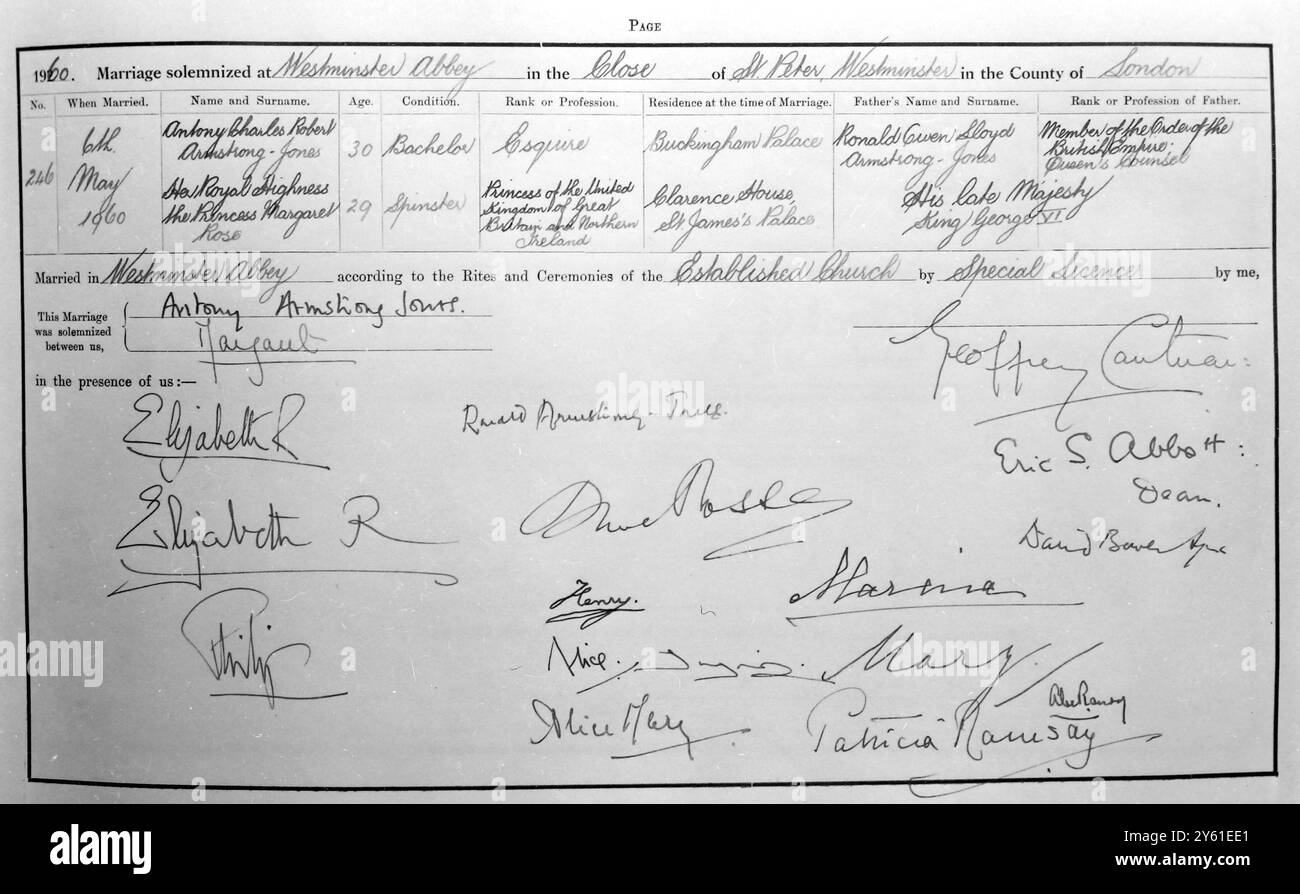 PAGE
1960. Marriage solemnized at Westminster Abbey in the Close of St. Peter, Westminster in the County of London
No. When Married. Name and Surname. Age. Condition. Rank or Profession. Residence at the time of Marriage. Father's Name and Surname. Rank or Profession of Father.
246
6th.
May
1960
Antony Charles Robert
Armstrong-Jones
30
Bachelor
Esquire
Buckingham Palace
Ronald Owen Lloyd
Armstrong-Jones
Member of the Order of the
British Empire:
Queen's Counsel
Her Royal Highness
the Princess Margaret
Rose
29
Spinster
Princess of the United
Kingdom of Great
Britain and Northern
Ireland
Clarence House,
St. James's Palace
His late Majesty
King George VI
Married in Westminster Abbey according to the Rites and Ceremonies of the Established Church by Special Licence by me,
This Marriage
was solemnized
between us,
Antony Armstrong Jones.
Margaret
Geoffrey Cantuar:
in the presence of us:—
Elizabeth R
Elizabeth R
Philip
Ronald Armstrong-Jones.
Anne Rosse
Henry.
Alice.
Alice Mary
Eric S. Abbott:
Dean.
David Bowes Lyon
Marina
Mary.
Patricia Ramsay
alamy
Image ID: 2Y61EE1
www.alamy.com